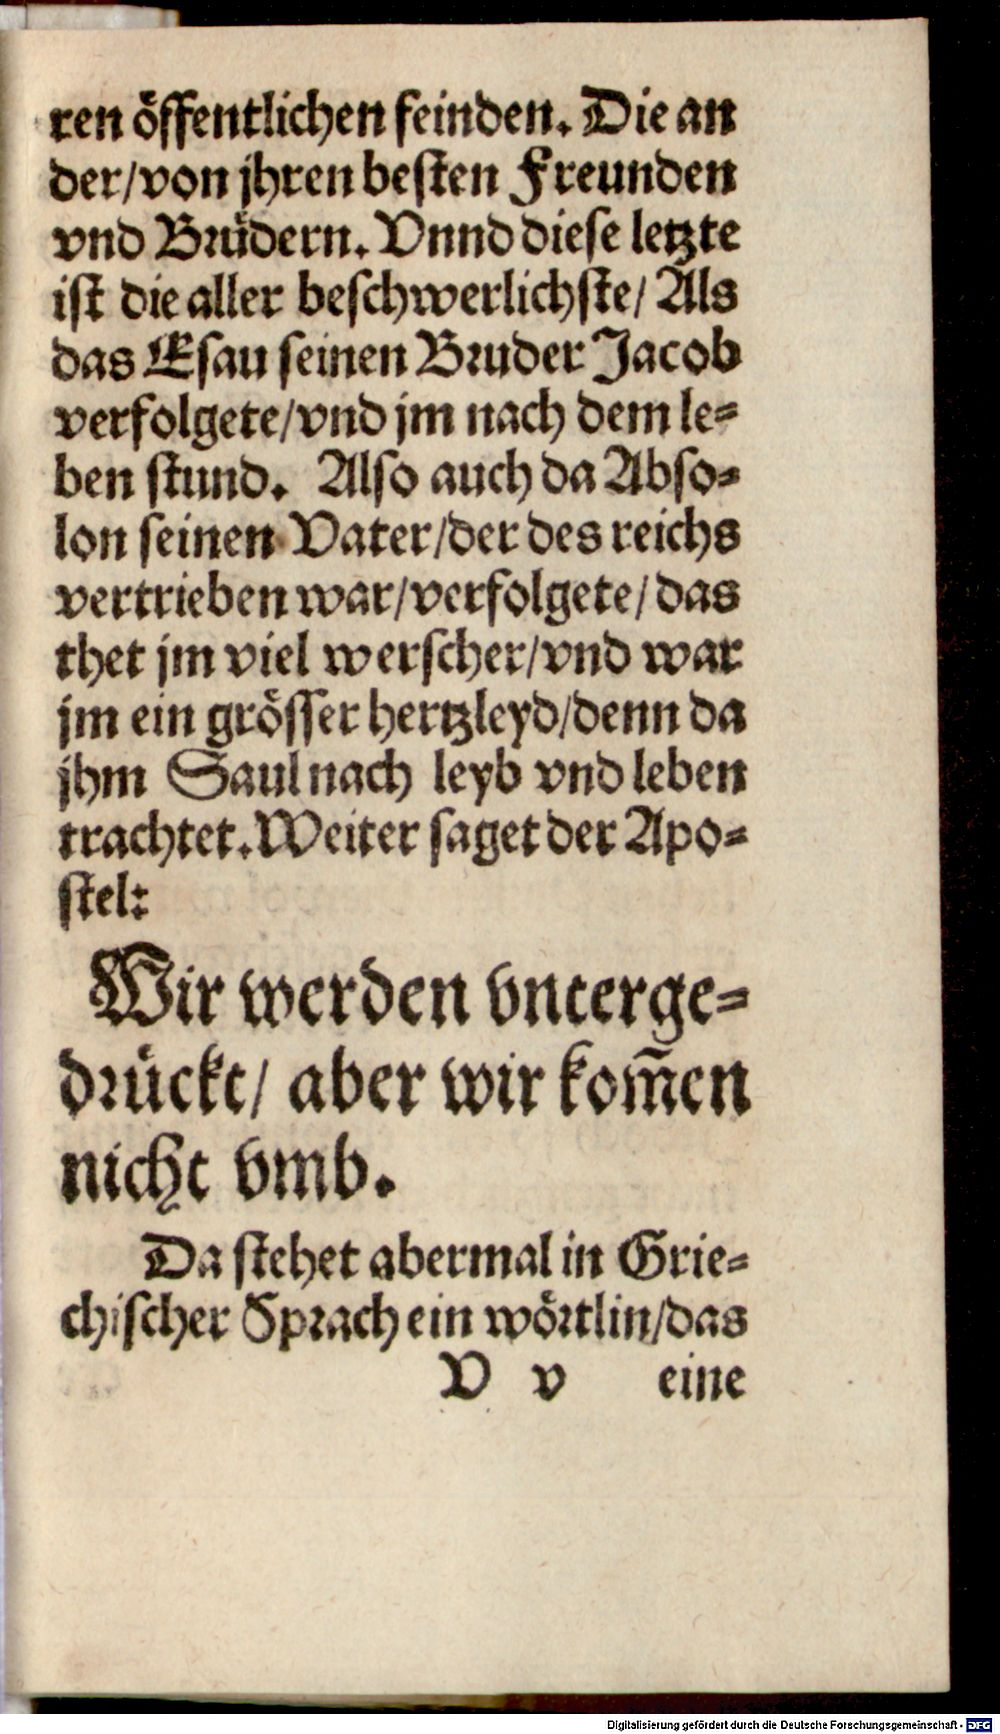 ren öffentlichen feinden. Die an
der/von jhren besten Freunden
vnd Brüdern. Vnnd diese letzte
ist die aller beschwerlichste/ Als
das Esau seinen Bruder Jacob
verfolgete/vnd jm nach dem le⸗
ben stund. Also auch da Abso⸗
lon seinen Vater/der des reichs
vertrieben war/verfolgete/das
thet jm viel werscher/vnd war
jm ein grösser hertzleyd/denn da
jhm Saul nach leyb vnd leben
trachtet. Weiter saget der Apo⸗
stel:
Wir werden vnterge⸗
drückt/ aber wir kom̃en
nicht vmb.
Da stehet abermal in Grie⸗
chischer Sprach ein wörtlin/das
V v eine
Digitalisierung gefördert durch die Deutsche Forschungsgemeinschaft - DFG